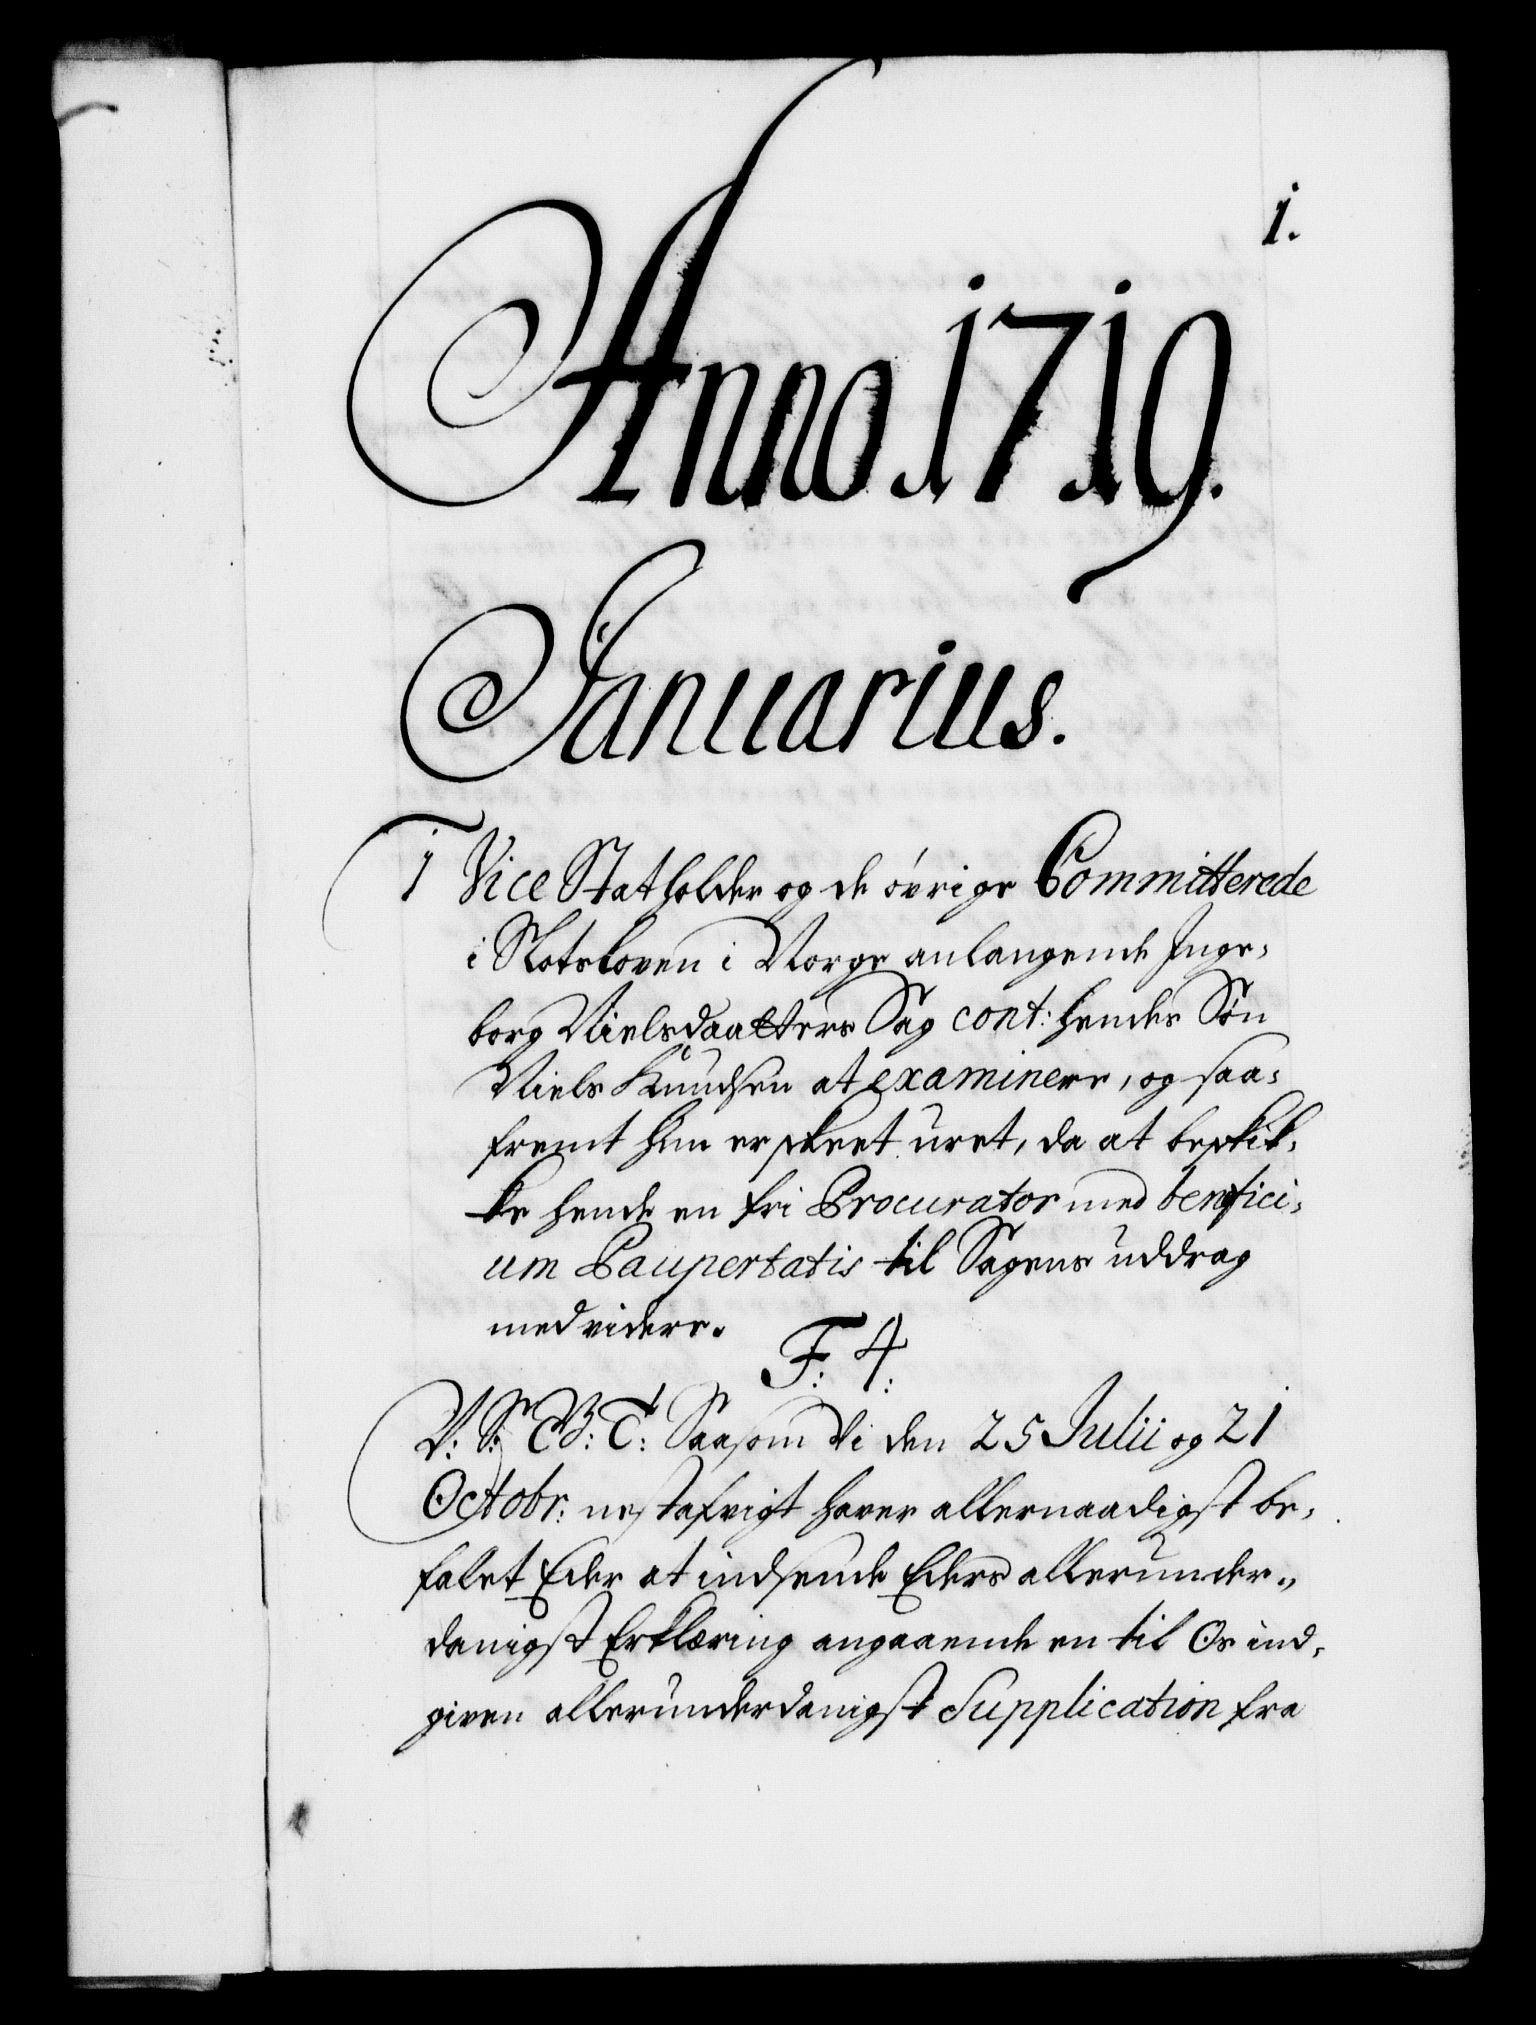 1.
Anno. 1719.
Januarius.
1 Vice Statholder og de øvrige Committerede
i Slotsloven i Norge anlangende Inge-
borg Nielsdaatters Sag cont: hendes Søn
Niels Knudsen at examinere, og saa-
fremt hun er skeet uret, da at beskik-
ke hende en fri Procurator med benefici-
um Paupertatis til Sagens uddrag
med videre.
F: 4:
V: S: G: B: T: Saasom Vi den 25 Julii og 21
Octobr: nestafvigt haver allernaadigst be-
falet Eder at indsende Eders allerunder-
danigst Erklæring angaaende en til Os ind-
given allerunderdanigst Supplication fra